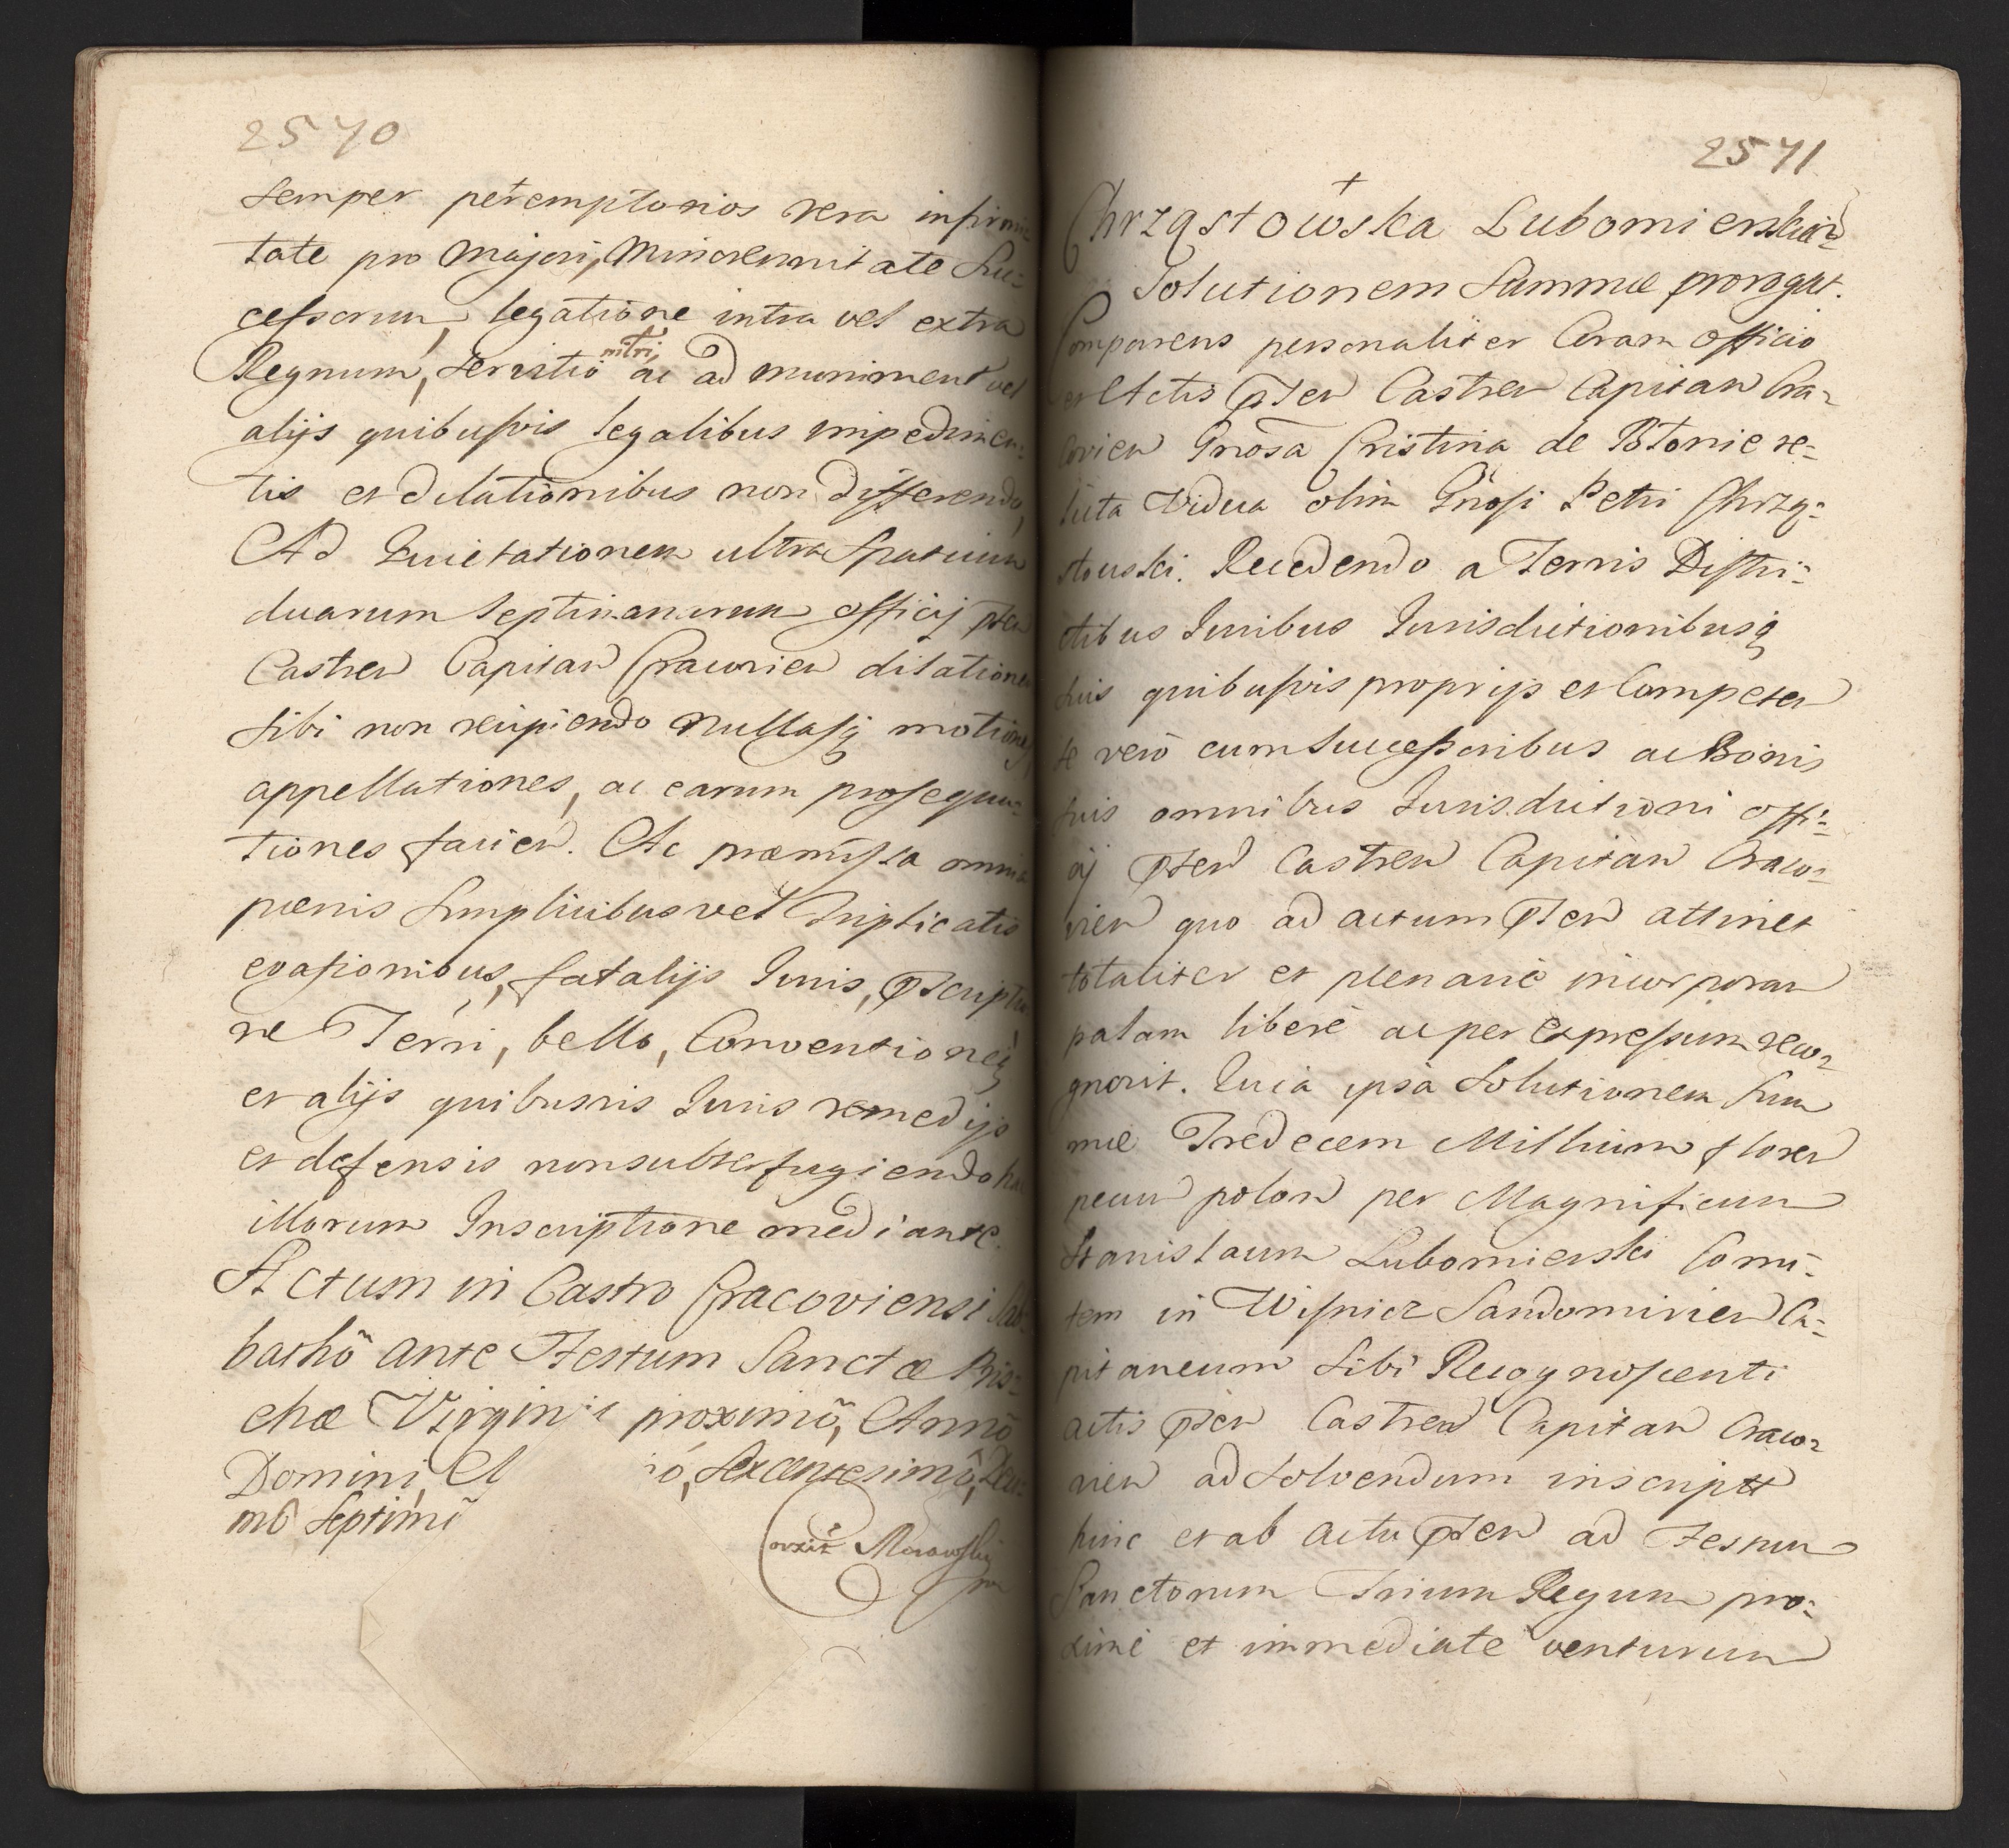 2570
semper peremptorios vera infirmi-
tate pro majori, Minorennitate Suc-
cessorum, legatione intra vel extra
Regnum, servitio nitri ac ad muniment vel
alijs quibusvis legalibus impedimen-
tis et dilationibus non differendo,
Ad Quietationem ultra Spatium
duarum septimanarum officij pten
Castren Capitan Cracovien dilationes
sibi non recipiendo nullasq motiones
appellationes, ac earum prosequu-
tiones facien. Ac præmissa omnia
pœnis simplicibus vel triplicatis
evasionibus, fatalijs Juris, pscriptio
ne Terri, bello, Conventioneq
et alijs quibusvis Juris remedijs
et defensis non subterfugiendo hac
illorum Inscriptione mediante.
Actum in Castro Cracoviensi Sab-
bathô ante Festum Sanctæ Pris-
chæ Virgini proximô, Annô
Domini, ô, sexcentesimô, Deci-
mô septimô
Morawski
mp
2571
Chrząstowska Lubomierskiem
Solutionem Summæ prorogat.
Comparens personaliter Coram officio
et Actis pten Castren Capitan Cra-
covien Gnosa Cristina de Potonie re-
licta Vidua olim Gnosi Petri Chrzą-
stowski. Recedendo a Terris Distri-
ctibus Juribus Jurisdictionibusq
suis quibusvis proprijs et Competen
se vero cum Successoribus ac Bonis
suis omnibus Jurisdictioni offi-
cij pten Castren Capitan Craco-
vien quo ad actum pten attinet
totaliter et plenarie incorporan
palam libere ac per expressum reco-
gnovit. Quia ipsa Solutionem Sum
mæ Tredecem Millium floren
pecun polon per Magnificum
Stanislaum Lubomierski Comi-
tem in Wisnicz Sandomirien Ca-
pitaneum sibi Recognoscenti
actis pten Castren Capitan Craco-
vien ad solvendum inscriptt
hinc et ab actu pten ad Festum
Sanctorum Trium Regum pro-
xime et immediate venturum